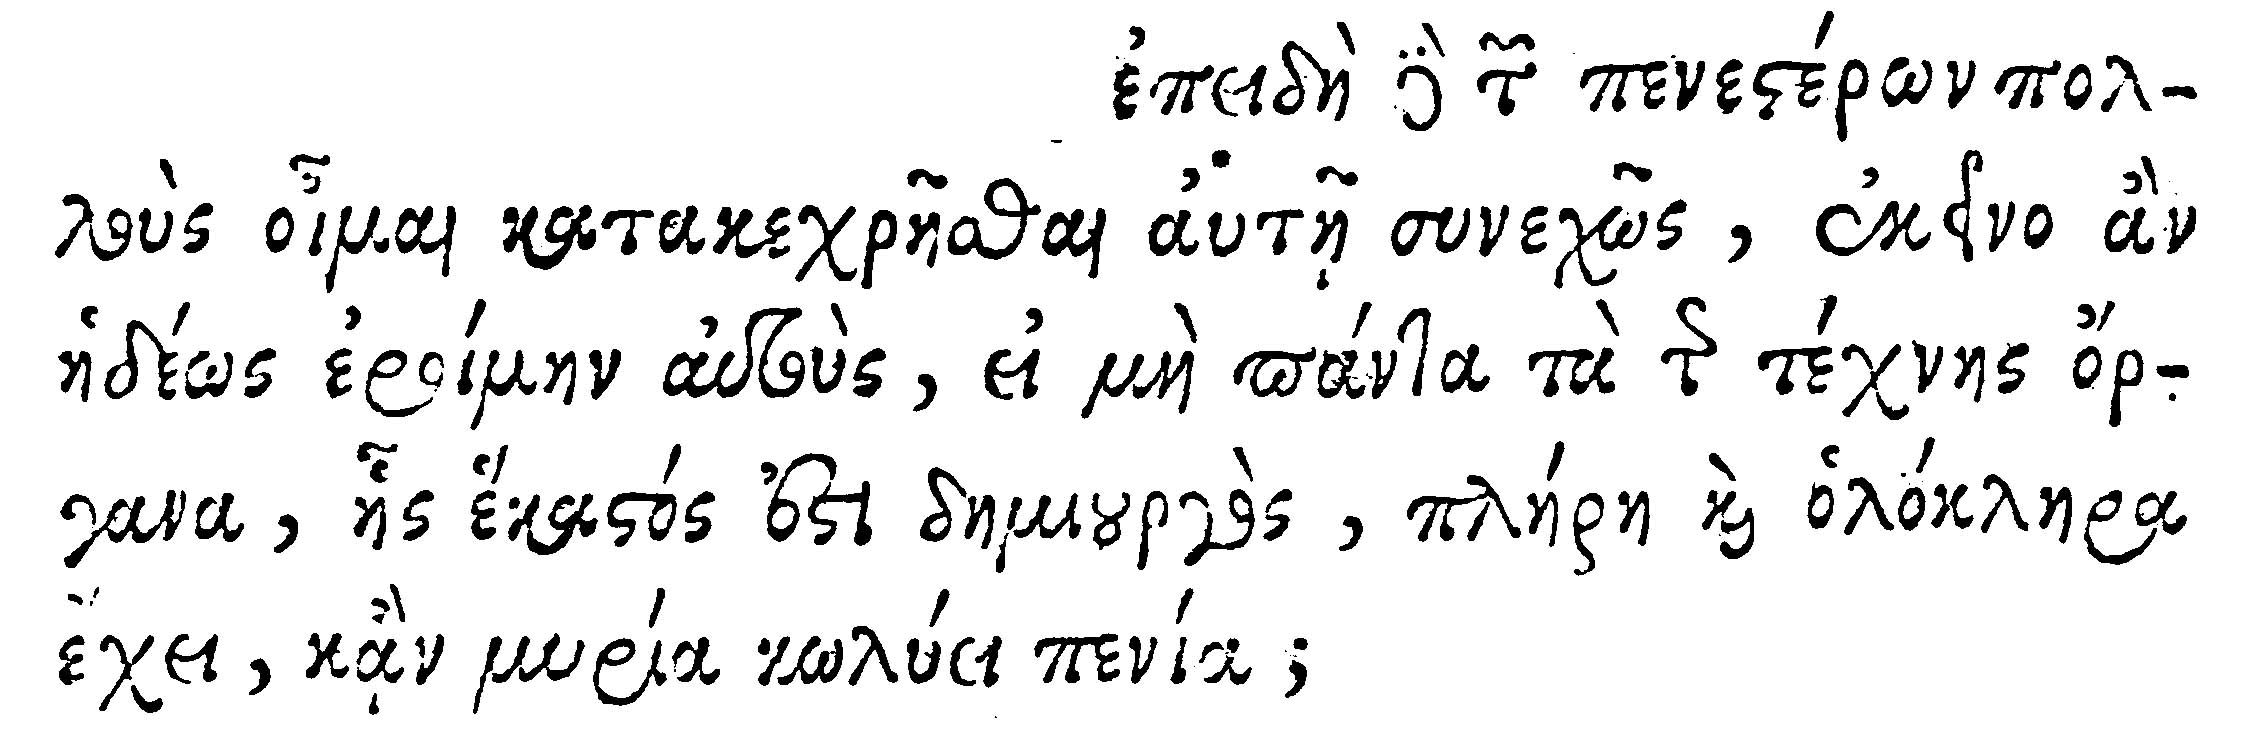 ἐπειδὴ δὲ τῶν πενεστέρων πολ-
λοὺς οἶμαι κατακεχρῆσθαι αὐτῇ συνεχῶς, ἐκεῖνο ἂν
ἡδέως ἐροίμην αὐτοὺς, εἰ μὴ πάντα τὰ τῆς τέχνης ὄρ-
γανα, ἧς ἕκαστός ἐστι δημιουργὸς, πλήρη καὶ ὁλόκληρα
ἔχει, κᾂν μυρία κωλύει πενία;